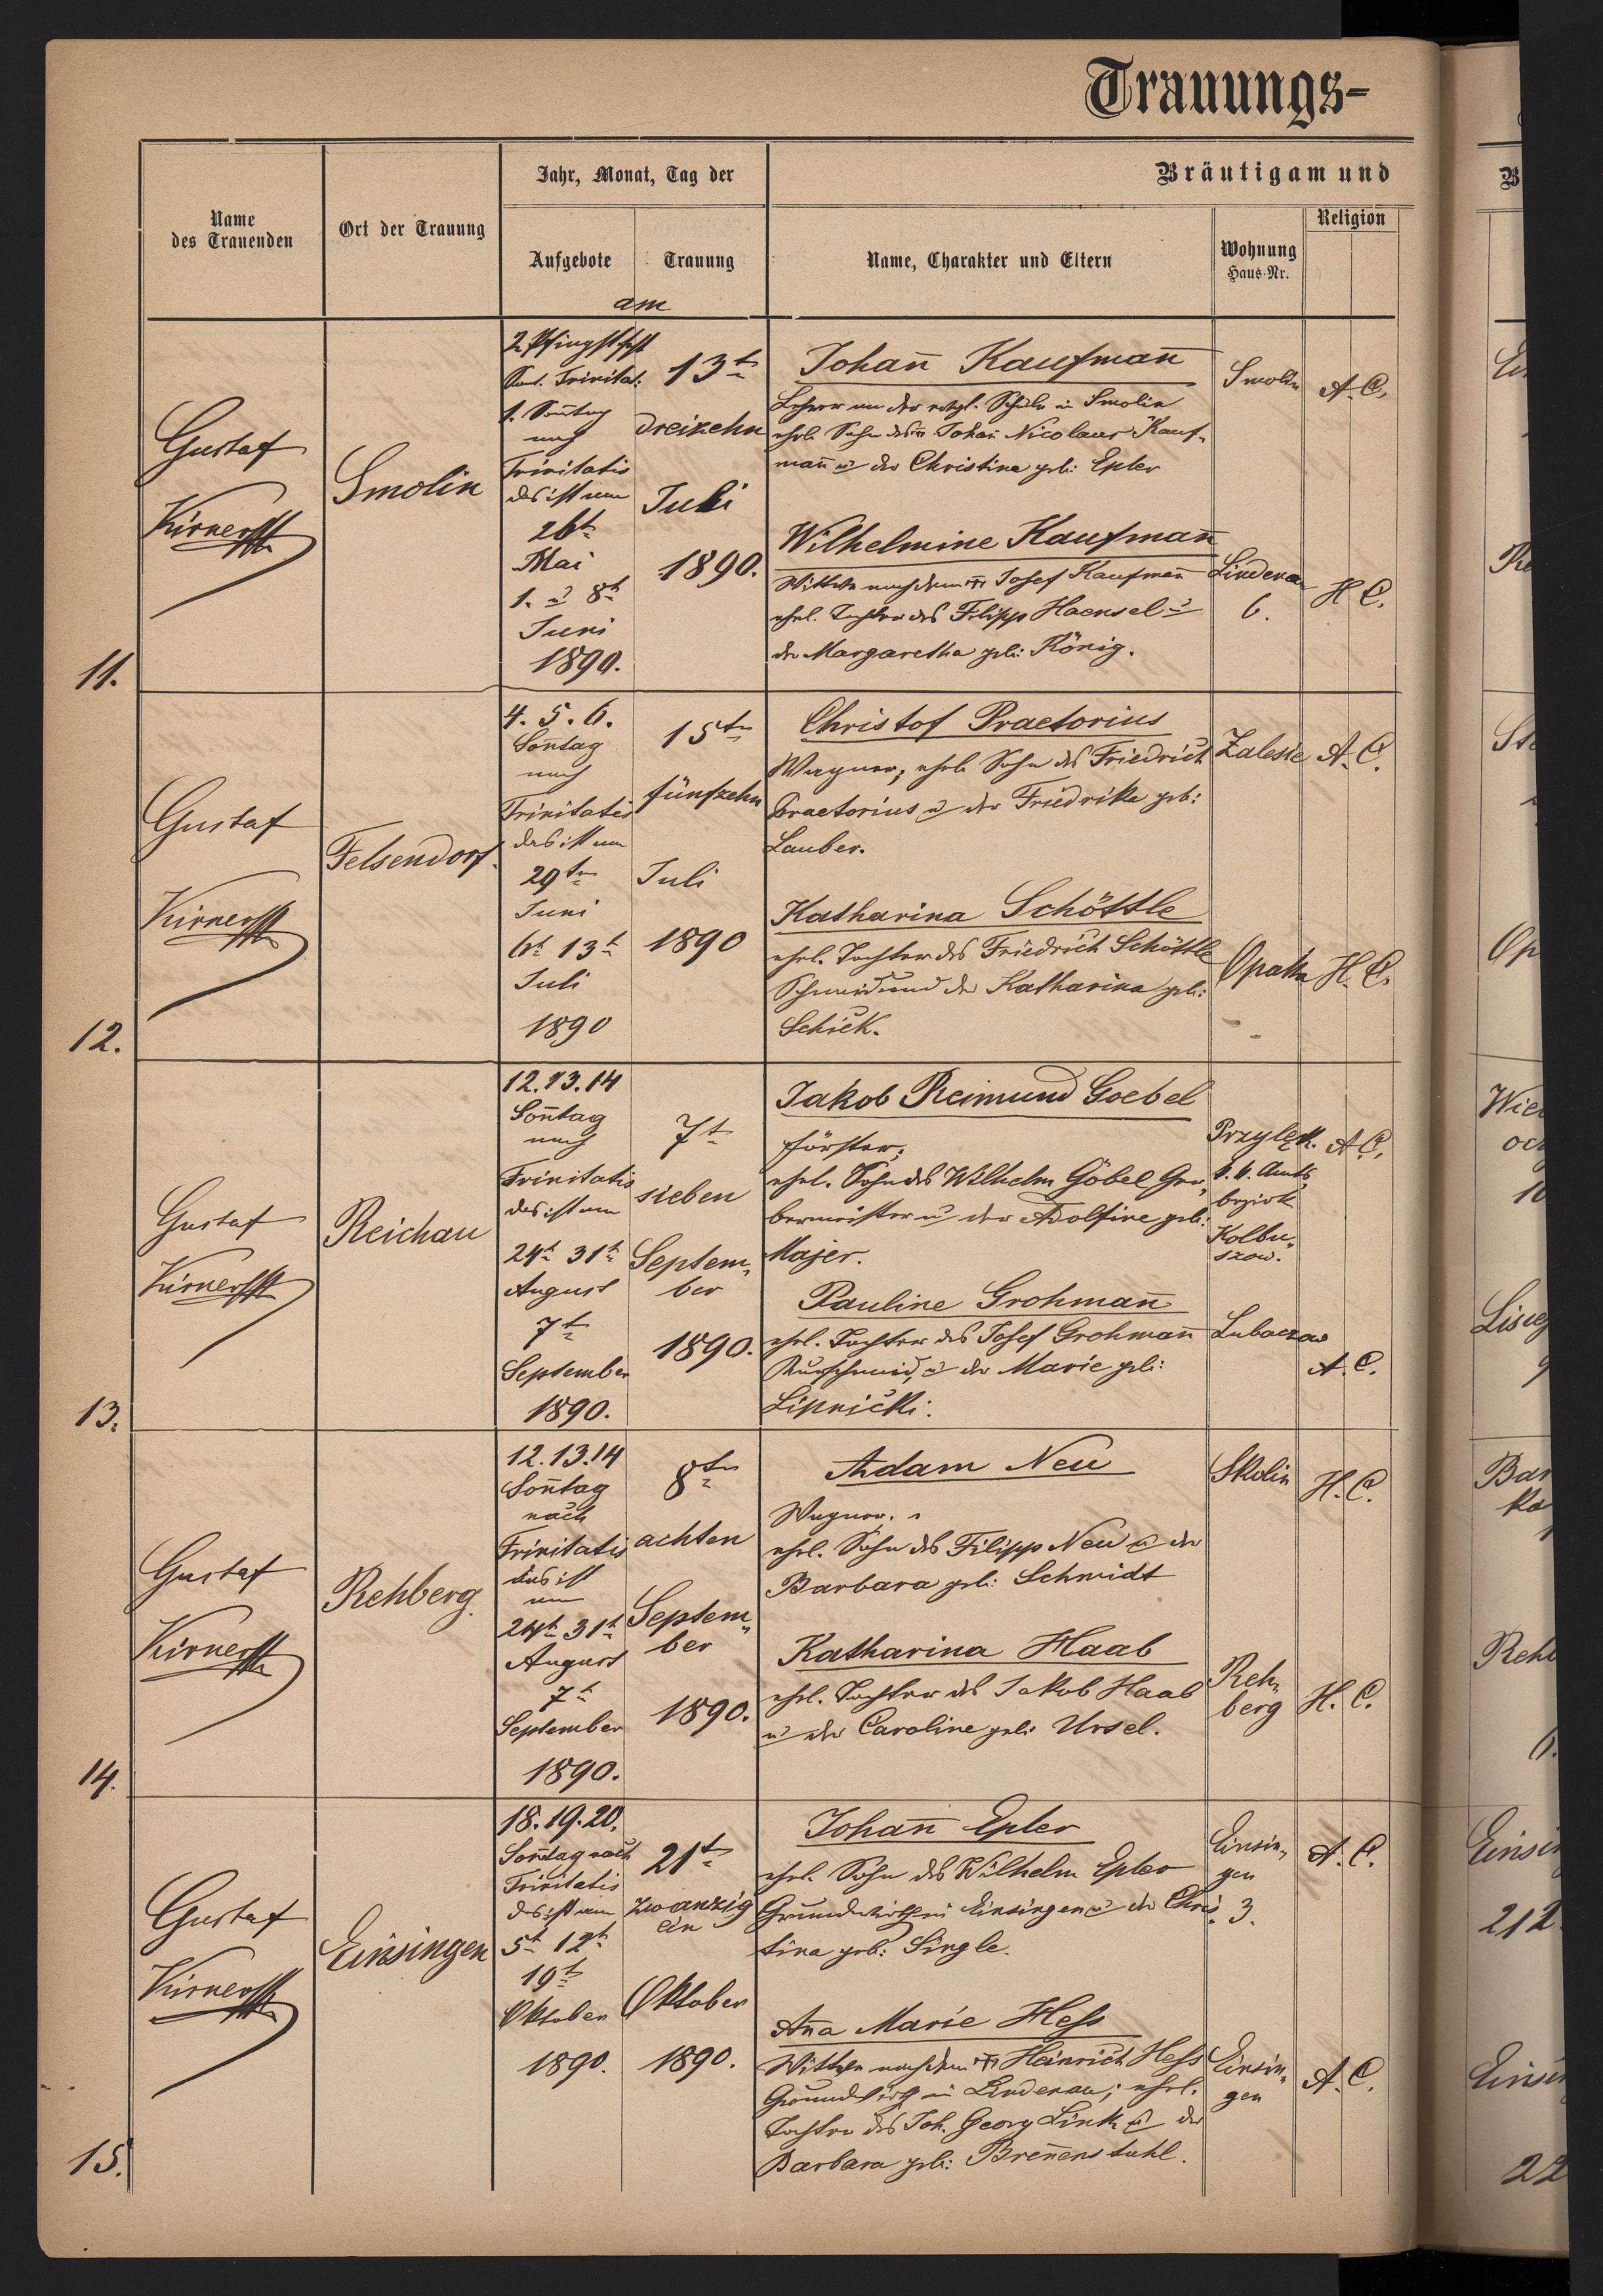 Trauungs-
Name
des Trauenden
Ort der Trauung
Jahr, Monat, Tag der
Aufgebote
Trauung
am
Bräutigam und
Name, Charakter und Eltern
Wohnung
Haus-Nr.
Religion
11.
Gustaf
Smolin
2. Pfingstfest
Trinitat.
1. Soñtag
nach
Trinitatis
das ist am
26t
Mai
1. u 8t
Juni
1890.
13t
dreizehn
Juli
1890.
Johañ Kaufmañ
Lehrer an der evtgl. Schule in Smolin
ehel. Sohn des Johañ Nicolaus Kauf-
mañ u der Christina geb: Epler
Smolin
A. C.
Wilhelmine Kaufmañ
Wittwe nach dem Josef Kaufmañ
ehel. Tochter des Filipp Haensel u
der Margaretha geb: König.
Lindenau
6.
H C.
12.
Gustaf
Felsendorf.
4. 5. 6.
Soñtag
nach
Trinitatis
das ist am
29tn
Juni
6t 13t
Juli
1890
15tn
fünfzehn
Juli
1890
Christof Praetorius
Wagner, ehel. Sohn des Friedrich
Praetorius u der Friedrika geb:
Lauber.
Zalesie
A. C.
Katharina Schöttle
ehel. Tochter des Friedrich Schöttle
Schmid und der Katharina geb:
Schick.
H. C.
13.
Gustaf
Reichau
12. 13. 14
Soñtag
nach
Trinitatis
das ist am
24t 31t
August
7t
September
1890.
7t
sieben
Septem„
ber
1890.
Jakob Reimund Goebel
Förster,
ehel. Sohn des Wilhelm Göbel Ger„
bermeister u der Adolfine geb:
Majer.
Amts„
bezirk
Kolbu„
szow.
A C.
Pauline Grohmañ
ehel. Tochter des Josef Grohmañ
u der Marie geb:
Lipnicki.
Lubaczow
A. C.
14.
Gustaf
Rehberg.
12. 13. 14
Soñtag
nach
Trinitatis
das ist
am
24t 31t
August
7t
September
1890.
8tn
achten
Septem„
ber
1890.
Adam Neu
Wagner.
ehel. Sohn des Filipp Neu u der
Barbara geb: Schmidt
Skolin
H. C.
Katharina Haab
ehel. Tochter des Jakob Haab
u der Caroline geb: Ursel.
Reh„
berg
H. C.
15.
Gustaf
Einsingen
18. 19. 20.
Soñtag nach
Trinitatis
das ist am
5t 12t
19t
Oktober
1890.
21t
zwanzig
ein
Oktober
1890.
Johañ Epler
ehel. Sohn des Wilhelm Epler
Grundwirth in Einsingen u der Chris
tina geb: Single.
Einsin„
gen
3.
A. C.
Aña Marie Hess
Wittwe nach dem Heinrich Hess
Grundwirth in Lindenau; ehel.
Tochter des Joh. Georg Link u der
Barbara geb: Breñenstuhl.
Einsin„
gen
A. C.
212
22